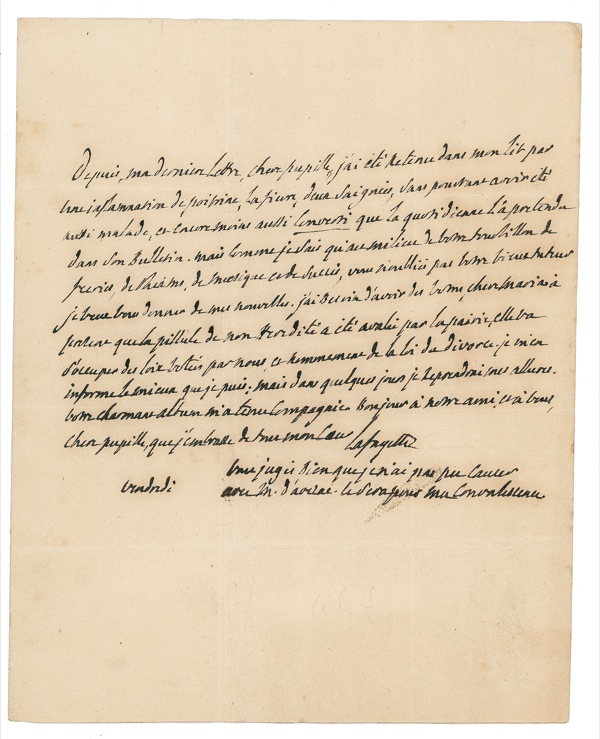 Depuis, ma derniere lettre, chere pupille, j'ai été retenu dans mon lit par
une inflammation de poitrine, la fievre, deux saignées, sans pourtant avoir été
aussi malade, et encore moins aussi converti que la quotidienne l'a pretendu
dans son Bulletin. mais comme je sais qu'au milieu de votre tourbillon de
de musique et de succès, vous n'oubliés pas votre vieux tuteur
je veux vous donner de mes nouvelles. j'ai besoin d'avoir des votres, chere maria à
present que la pillule de non heredité a été avalée par la pairie, elle va
s'occuper des loix votées par nous, et nommement de la loi du divorce. je m'en
informe le mieux que je puis. mais dans quelques jours je reprendrai mes allures.
votre charmant album m'a tenu compagnie. Bonjour à notre ami, et à vous,
chere pupille, que j'embrasse de tout mon coeur
Lafayette
vous jugés bien que je n'ai pas pu causer
vendredi
avec M. ce sera pour ma convalescence